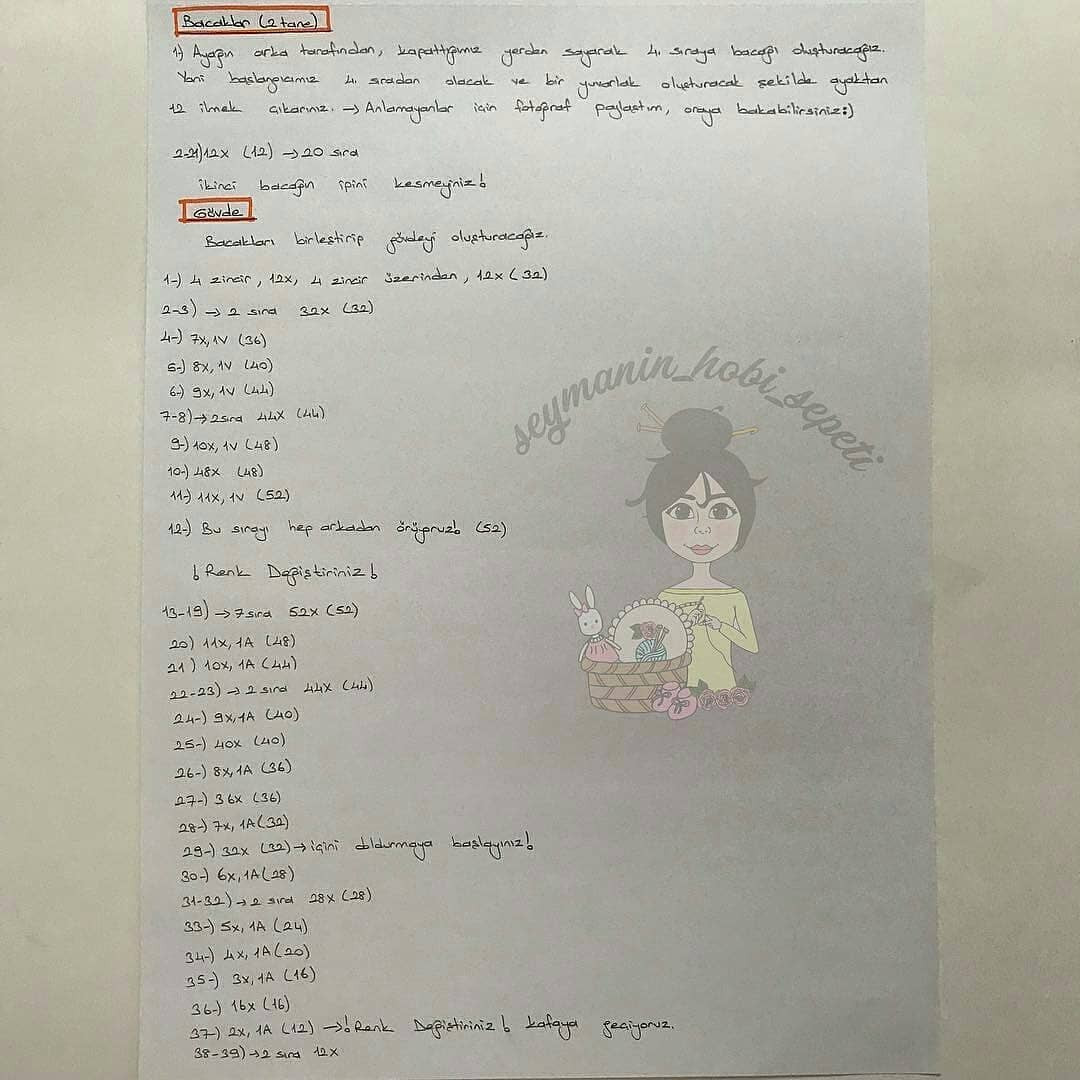 Bacaklar (2 tane)
1-) Ayağın arka tarafından, kapattığımız yerden sayarak 4. sıraya bacağı oluşturacağız.
Yani başlangıcımız 4. sıradan olacak ve bir yuvarlak oluşturacak şekilde ayaktan
12 ilmek çıkarınız. → Anlamayanlar için fotoğraf paylaştım, oraya bakabilirsiniz:)
2-21) 12x (12) → 20 sıra
İkinci bacağın ipini kesmeyiniz!
Gövde
Bacakları birleştirip gövdeyi oluşturacağız.
1-) 4 zincir, 12x, 4 zincir üzerinden, 12x (32)
2-3) → 2 sıra 32x (32)
4-) 7x, 1v (36)
5-) 8x, 1v (40)
6-) 9x, 1v (44)
7-8) → 2 sıra 44x (44)
9-) 10x, 1v (48)
10-) 48x (48)
11-) 11x, 1v (52)
12-) Bu sırayı hep arkadan örüyoruz! (52)
! Renk Değiştiriniz!
13-19) → 7 sıra 52x (52)
20) 11x, 1A (48)
21) 10x, 1A (44)
22-23) → 2 sıra 44x (44)
24-) 9x, 1A (40)
25-) 40x (40)
26-) 8x, 1A (36)
27-) 36x (36)
28-) 7x, 1A (32)
29-) 32x (32) → içini doldurmaya başlayınız!
30-) 6x, 1A (28)
31-32) → 2 sıra 28x (28)
33-) 5x, 1A (24)
34-) 4x, 1A (20)
35-) 3x, 1A (16)
36-) 16x (16)
37-) 2x, 1A (12) → ! Renk Değiştiriniz! kafaya geçiyoruz.
38-39) → 2 sıra 12x
seymanin_hobi_sepeti